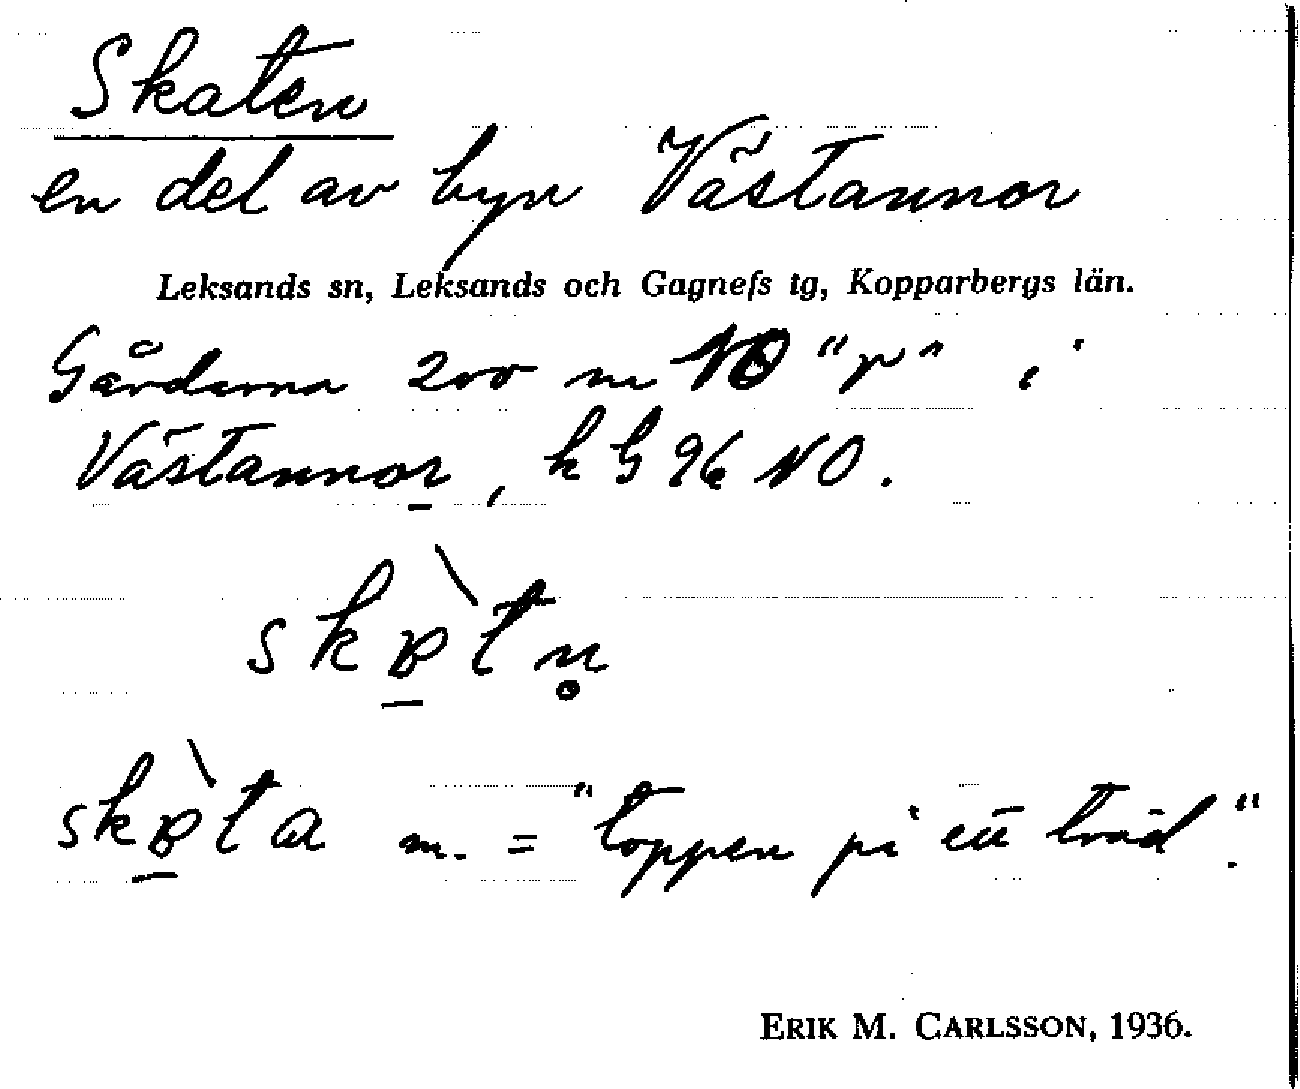 Skaten
en del av byn Västannor
Leksands sn, Leksands och Gagnefs tg, Kopparbergs län.
Gårdarna 200 m NO "r" i
Västannor, k G 96 NO.
skɐ̠̀tn̥
skɐ̠̀ta m. = "toppen på ett träd".
ERIK M. CARLSSON, 1936.